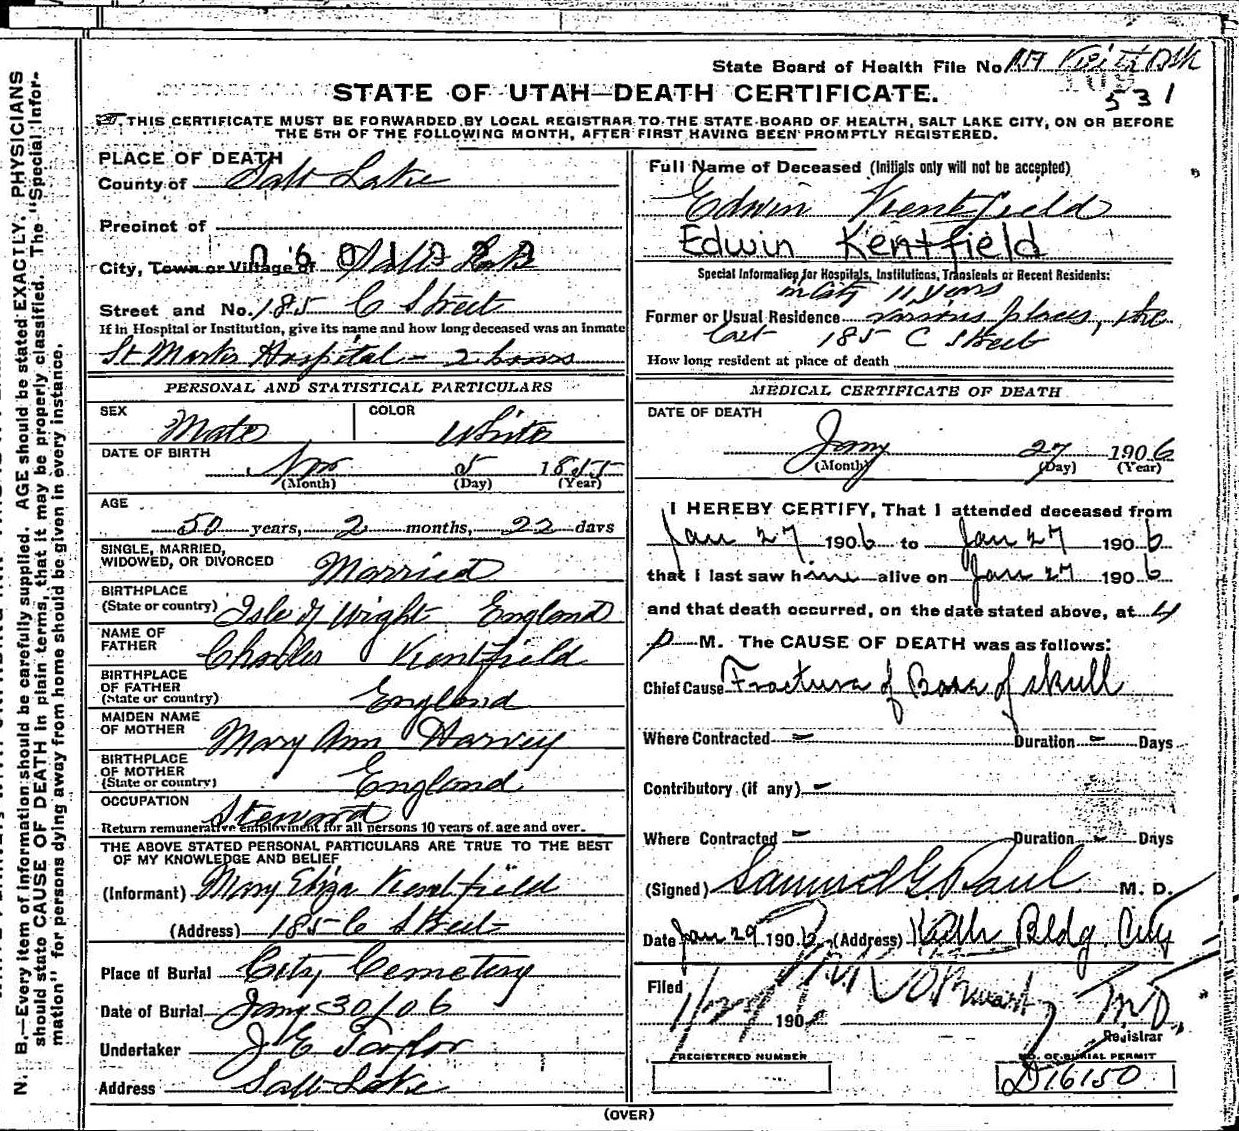 State Board of Health File No.
531
STATE OF UTAH—DEATH CERTIFICATE.
THIS CERTIFICATE MUST BE FORWARDED BY LOCAL REGISTRAR TO THE STATE BOARD OF HEALTH, SALT LAKE CITY, ON OR BEFORE
THE 5TH OF THE FOLLOWING MONTH, AFTER FIRST HAVING BEEN PROMPTLY REGISTERED.
PLACE OF DEATH
County of Salt Lake
Precinct of
City, Town or Village of Salt Lake
Street and No. 185 C Street
If in Hospital or Institution, give its name and how long deceased was an inmate
St Marks Hospital - 2 hours
PERSONAL AND STATISTICAL PARTICULARS
SEX Male COLOR White
DATE OF BIRTH Nov 5 1855
(Month) (Day) (Year)
AGE
50 years, 2 months, 22 days
SINGLE, MARRIED,
WIDOWED, OR DIVORCED Married
BIRTHPLACE
(State or country) Isle of Wight England
NAME OF
FATHER Charles Kentfield
BIRTHPLACE
OF FATHER
(State or country) England
MAIDEN NAME
OF MOTHER Mary Ann Harvey
BIRTHPLACE
OF MOTHER
(State or country) England
OCCUPATION Steward
Return remunerative employment for all persons 10 years of age and over.
THE ABOVE STATED PERSONAL PARTICULARS ARE TRUE TO THE BEST
OF MY KNOWLEDGE AND BELIEF
(Informant) Mary Eliza Kentfield
(Address) 185 C Street
Place of Burial City Cemetery
Date of Burial Jany 30/06
Undertaker J E Taylor
Address Salt Lake
Full Name of Deceased (Initials only will not be accepted)
Edwin Kentfield
Edwin Kentfield
Special Information for Hospitals, Institutions, Transients or Recent Residents:
in City 11 years
Former or Usual Residence various places, the
last 185 C Street
How long resident at place of death
MEDICAL CERTIFICATE OF DEATH
DATE OF DEATH
Jany 27 1906
(Month) (Day) (Year)
I HEREBY CERTIFY, That I attended deceased from
Jan 27 1906 to Jan 27 1906
that I last saw him alive on Jan 27 1906
and that death occurred, on the date stated above, at 4
p M. The CAUSE OF DEATH was as follows:
Chief Cause Fracture of Base of skull
Where Contracted - Duration - Days
Contributory (if any) -
Where Contracted - Duration - Days
(Signed) Samuel G. Paul M. D.
Date Jan 29 1906 (Address) Keith Bldg. City
Filed 190
Registrar
REGISTERED NUMBER
NO. OF BURIAL PERMIT
D16150
(OVER)
N. B.—Every item of information should be carefully supplied. AGE should be stated EXACTLY. PHYSICIANS
should state CAUSE OF DEATH in plain terms, that it may be properly classified. The "Special Infor-
mation" for persons dying away from home should be given in every instance.